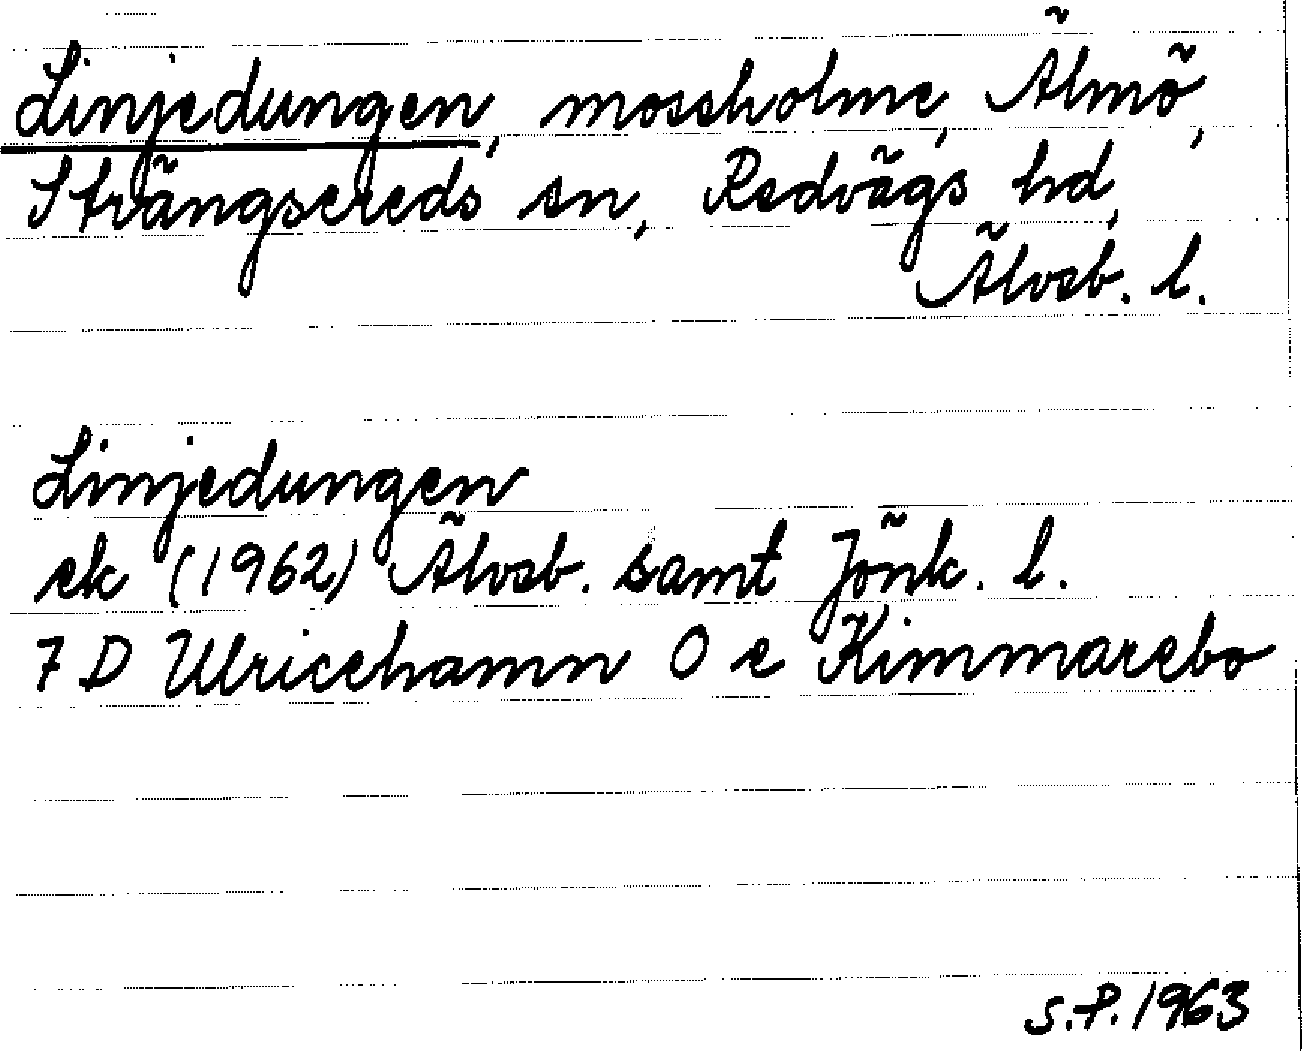 Linjedungen, mossholme, Älmö,
Strängsereds sn, Redvägs hd,
Älvsb. l.
Linjedungen
ek (1962) Älvsb. samt Jönk. l.
7 D Ulricehamn O e Kimmarebo
S.P. 1963